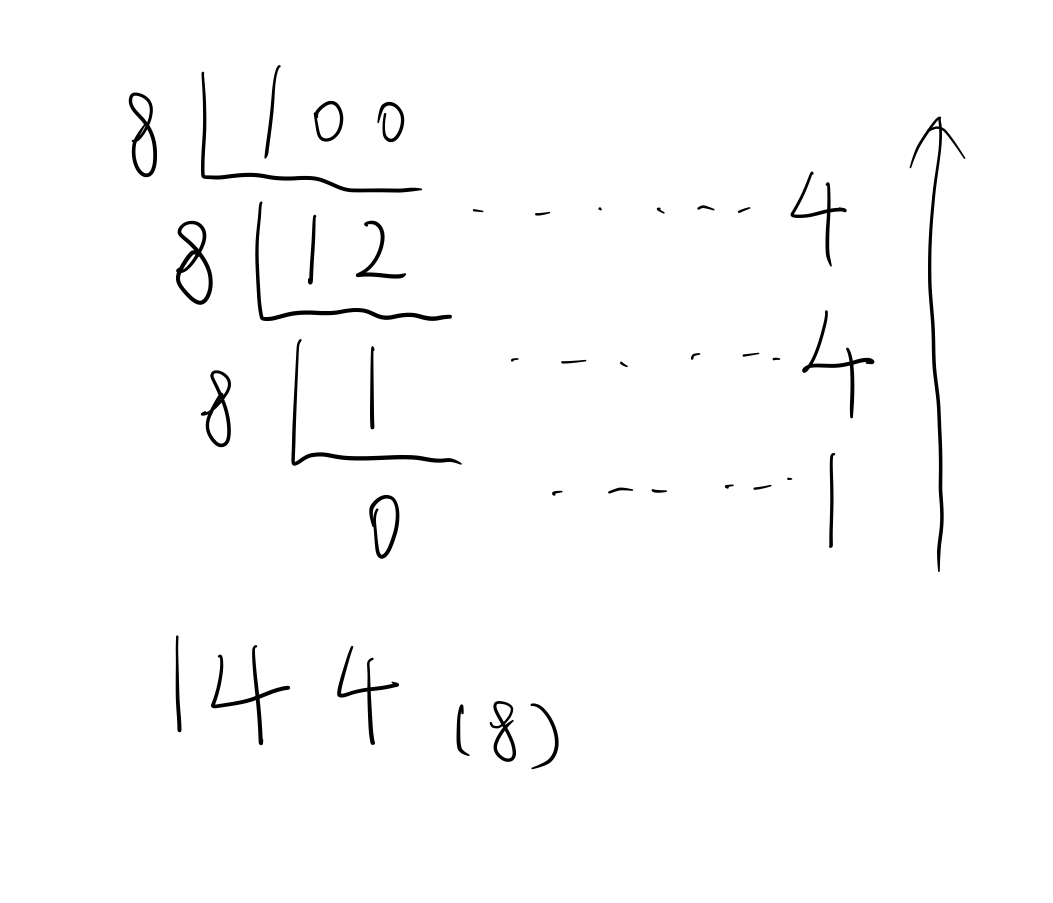 8 100
8 12 4
8 1 4
0 1
144 (8)